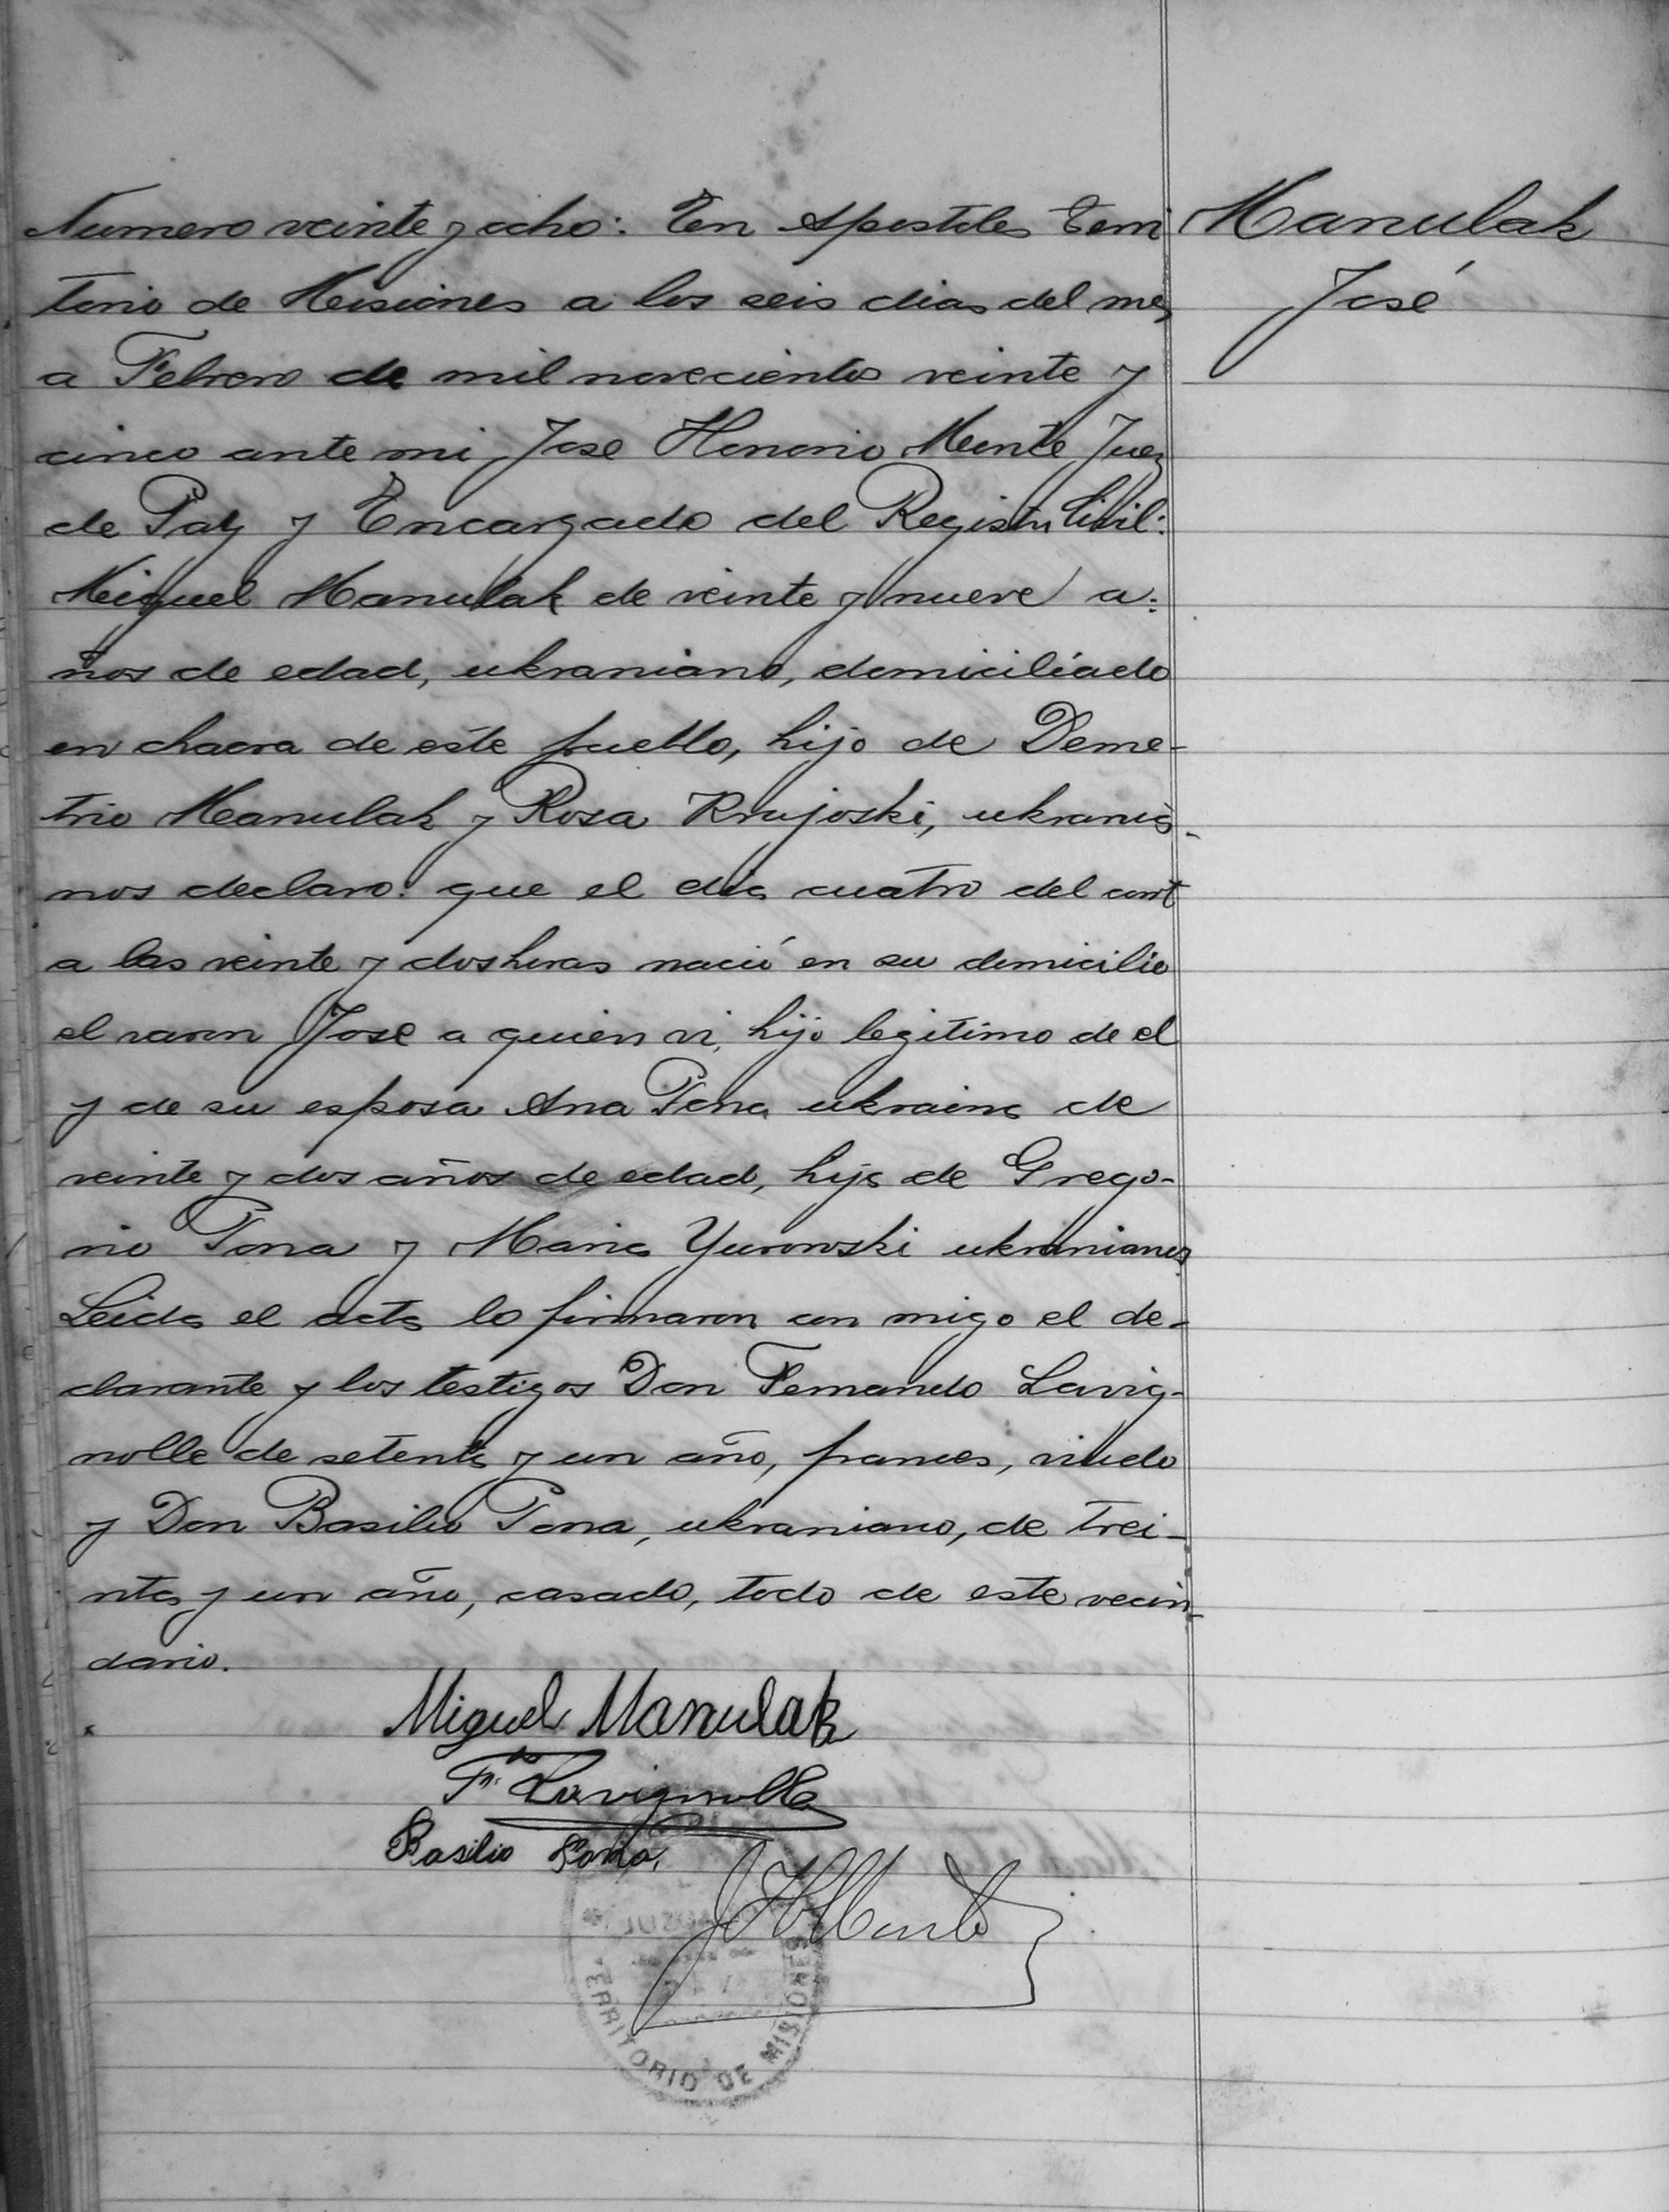 Numero veinte y ocho: En Apostoles Terri
torio de Misiones a los seis dias del mes
a Febrero de mil novecientos veinte y
cinco ante mi, Jose Honorio Monte Juez
de Paz y Encargado del Registro Civil:
Miguel Manulak de veinte y nueve a-
ños de edad, ukraniano, domiciliado
en chacra de este pueblo, hijo de Deme-
trio Manulak y Rosa Krujoski, ukrania-
nos declaro: que el dia cuatro del corrt
a las veinte y dos horas nació en su domicilio
el varon Jose a quien vi, hijo legitimo de el
y de su esposa Ana Pona ukraina de
veinte y dos años de edad, hija de Grego-
rio Pona y Maria Yurowski ukranianos
Leida el acta lo firmaron con migo el de-
clarante y los testigos Don Fernando Lavig-
nolle de setenta y un año, frances, viudo
y Don Basilio Pona, ukraniano, de trei-
nta y un año, casado, todo de este vecin-
dario.
Manulak
José
Miguel Manulak
F.do Lavignolle
Basilio Pona,
JHMonte
JUZGADO
TERRITORIO DE MISIONES